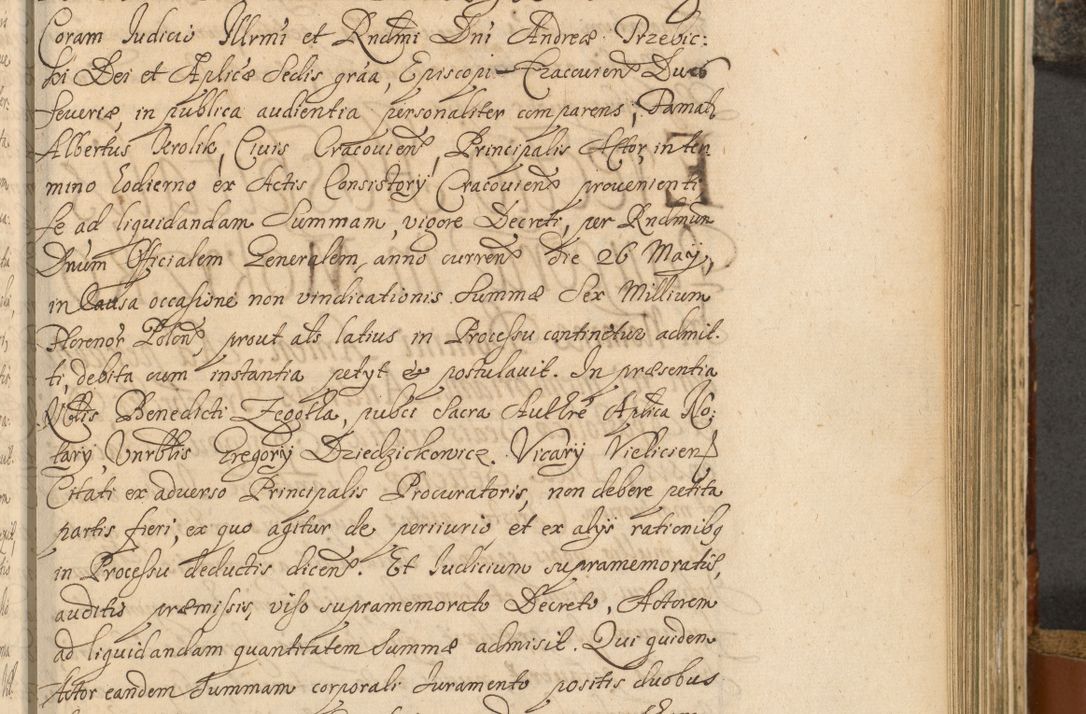 Coram Judicio Illrmi et Rndmi Dni Andreæ Trzebic:
ki Dei et Aplicæ Sedis graa, Episcopi Cracovien Ducis
Severiæ, in publica audientia personaliter comparens, Famat,
Albertus Krolik, Civis Cracovien, Principalis Actor, in ter
mino hodierno ex Actis Consistorÿ Cracovien provenienti
se ad liquidandam Summam, vigore Decreti, per Rndmum
Dnum Officialem Generalem, anno curren die 26 Maÿ,
in Causa occasione non vindicationis Summæ Sex Millium
Florenor Polon, prout als latius in Processu continetur admit.
ti, debita cum instantia petyt & postulavit. In præsentia
Nblis Benedicti Zegotta, publci Sacra Authre Aplica No:
tarÿ, Vnrblis Gregorÿ Dziedzickowicz Vicarÿ Vielicien
Citati ex adverso Principalis Procuratoris, non debere petita
partis fieri, ex quo agitur de periurio et ex alÿs rationibq
in Processu deductis dicen. Et Judicium supramemoratu,
auditis præmissis, viso supramemorato Decreto, Actorem
ad liquidandam quantitatem Summæ admisit. Qui quidem
Actor eandem Summam corporali Juramento positis duobus